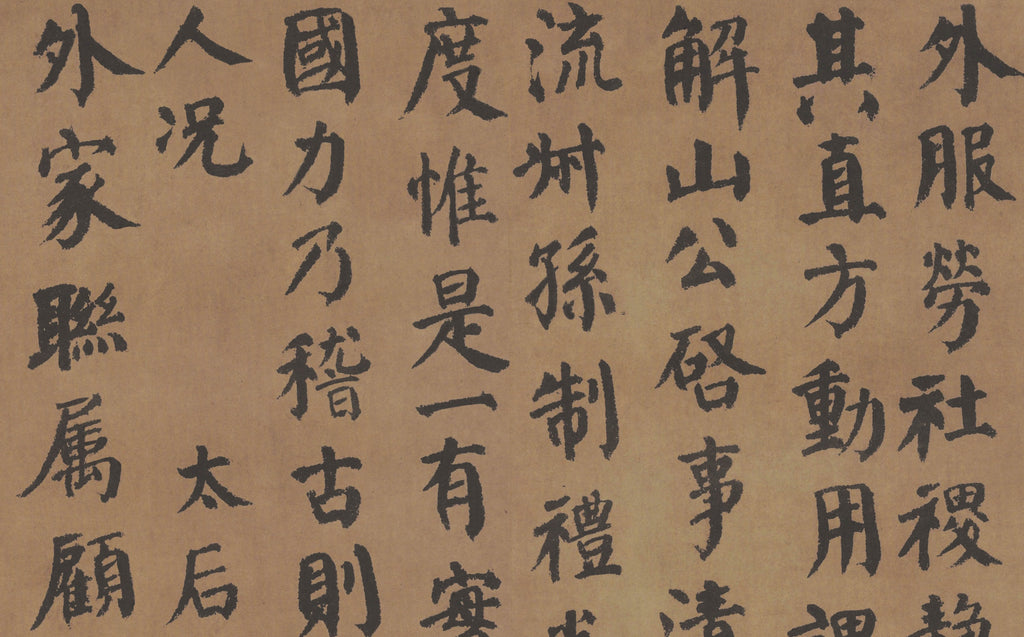 外服勞社稷静
其直方動用謂
解山公啓事清
流叔孫制禮
度惟是一有實
國力乃稽古則
人况 太后
外家聯属顧